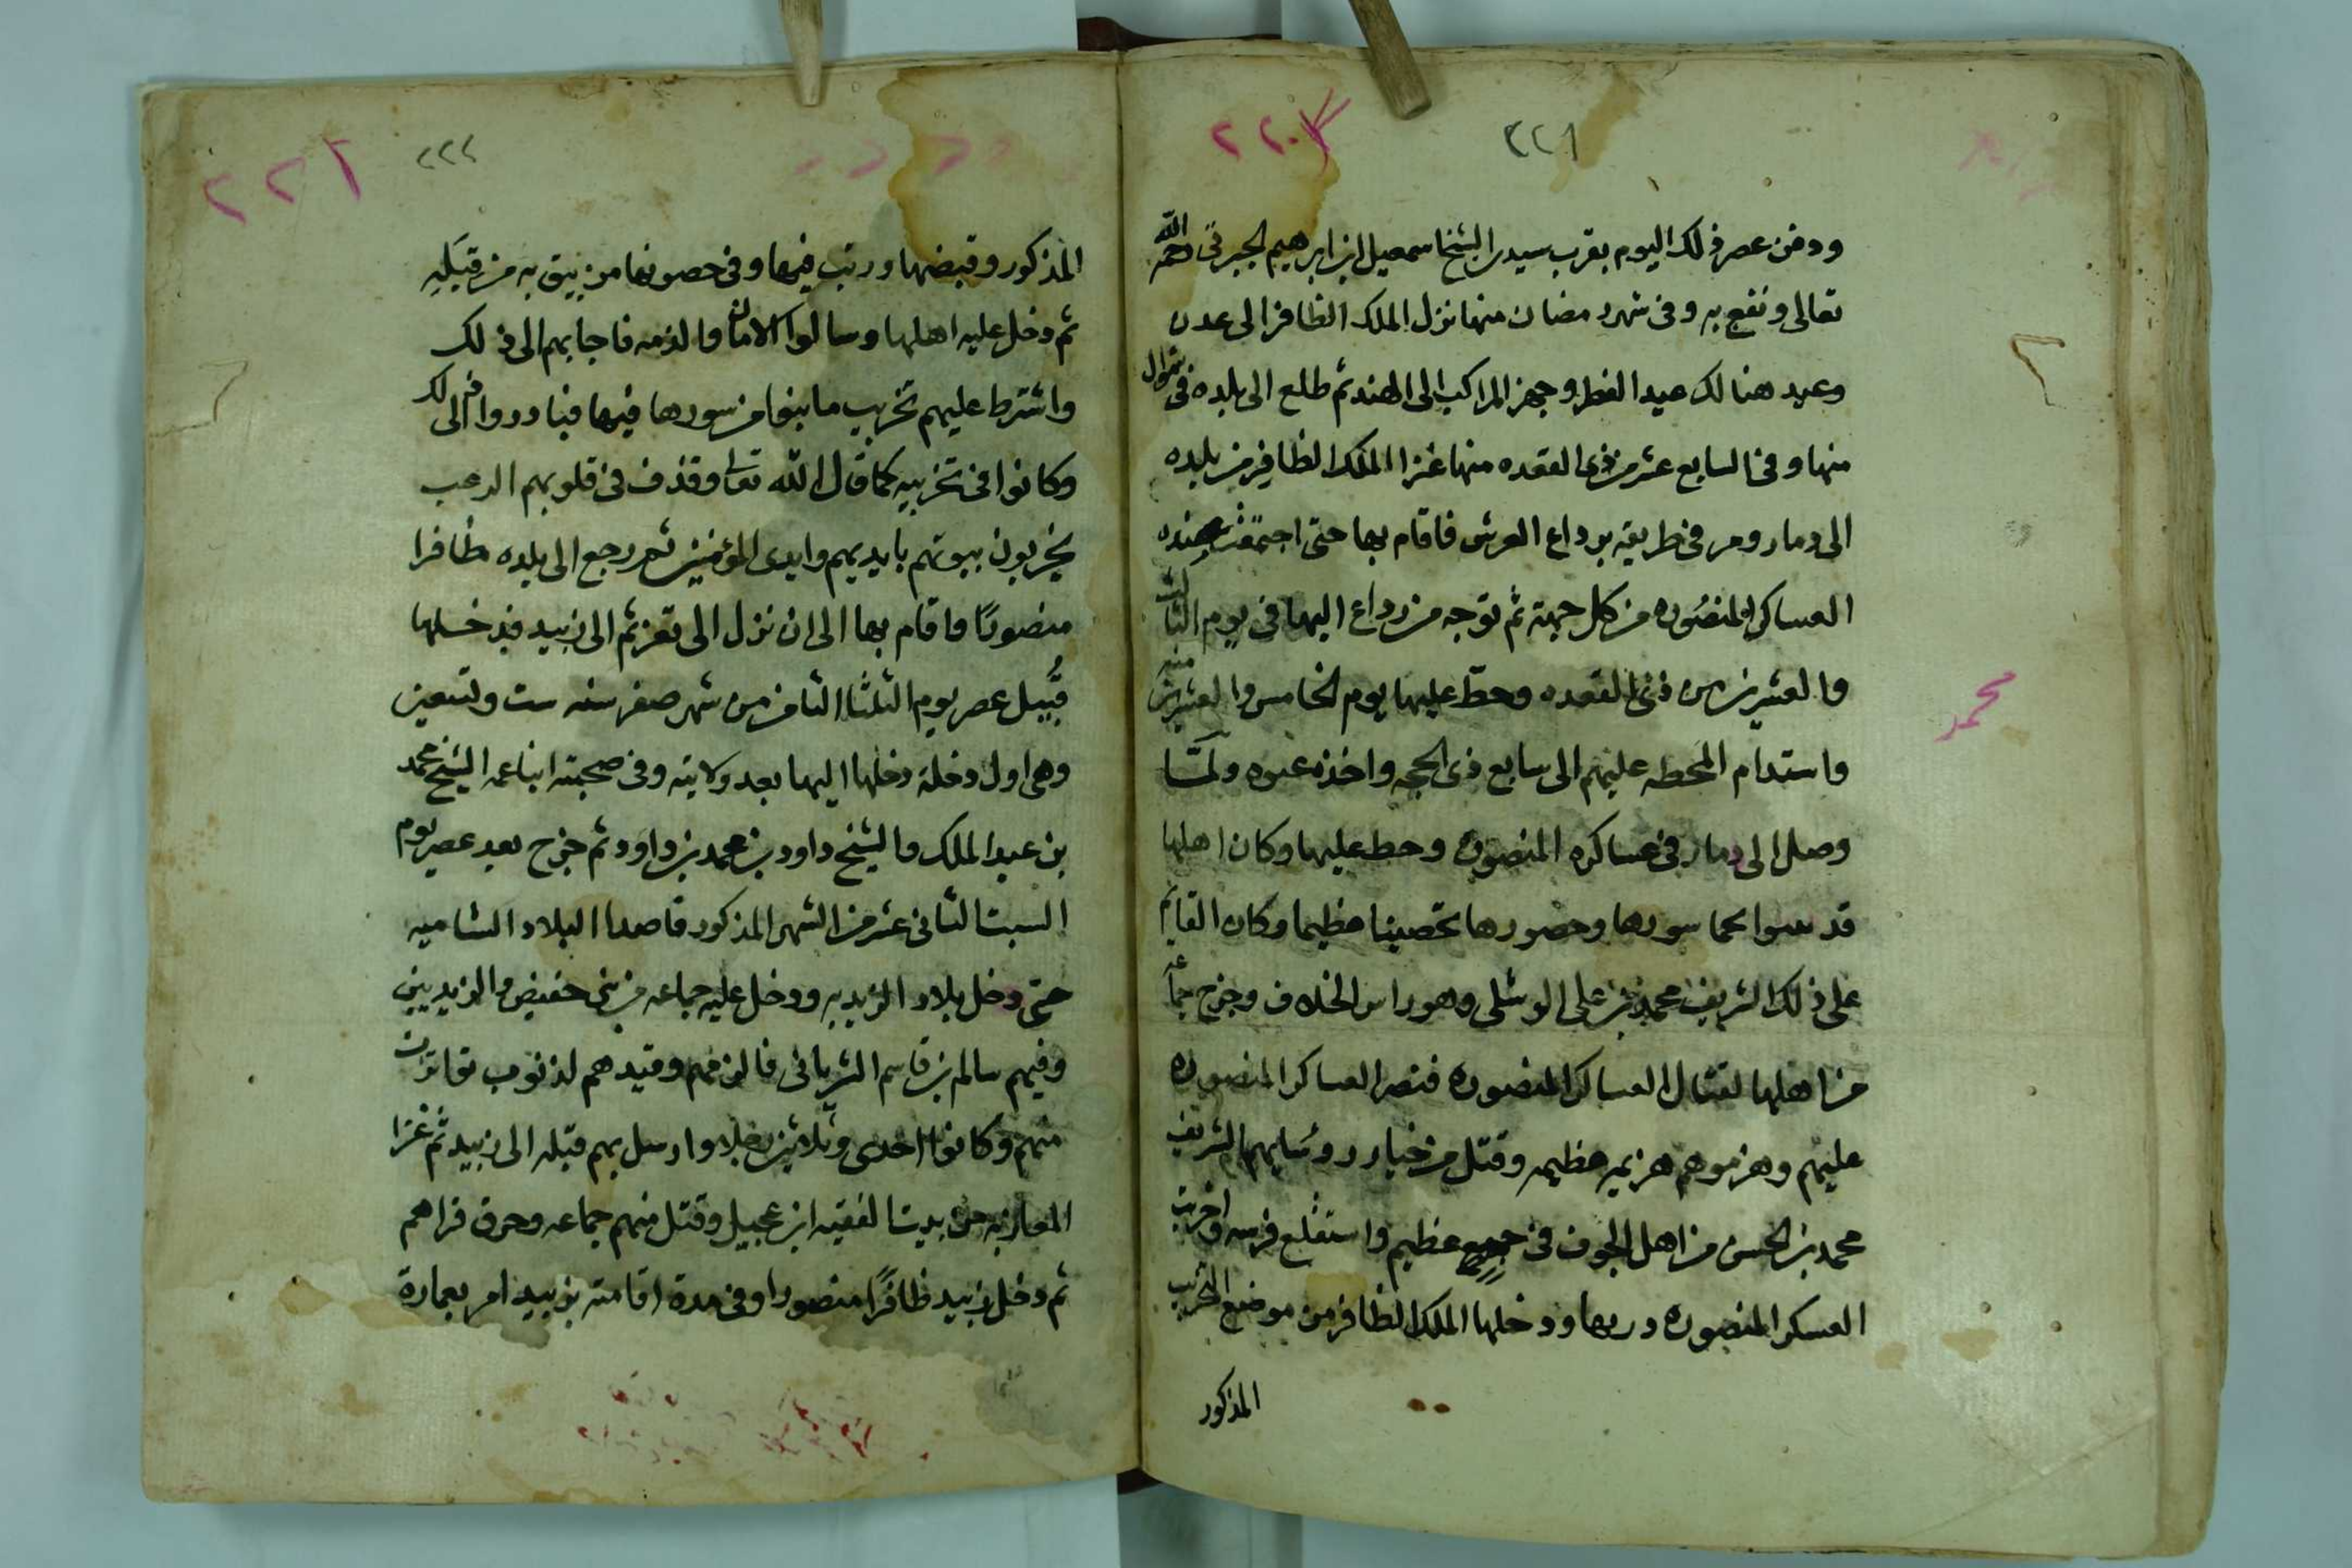 ٢٢٠
٢٢١
ودفن عصر ذلك اليوم بقرب سيدى الشيخ اسمعيل ابن ابرهيم الجبرتى رحمه الله
تعالى ونفع به وفى شهر رمضان منها نزل الملك الظافر الى عدن
وعيد هنالك عيد الفطر وجهز المراكب الى الهند ثم طلع الى بلده فى شوال
منها وفى السابع عشر من ذى القعده منها غزا الملك الظافر من بلده
الى دمار ومر فى طريقه برداع العرش فاقام بها حتى اجتمعت عنده
العساكر المنصوره من كل جهة ثم توجه من رداع اليها فى يوم الثالث
والعشرين من ذى القعده وحط عليها يوم الخامس والعشرين منه
واستدام المحطه عليهم الى سابع ذى الحجه واخذه عنوه ولما
وصل الى دمار فى عساكره المنصوره وحط عليها وكان اهلها
قد سورها وحصورها تحصينا عظيما وكان القايم
على ذلك الشريف محمد بن على الوشلى وهو راس الخلاف وخرج جماعه
من اهلها لقتال العساكر المنصوره فنصر العساكر المنصوره
عليهم وهزموهم هزيمه عظيمه وقتل من خيار روسايهم الشريف
محمد بن الحسن من اهل الجوف فى جمع عظيم واستقلع فرسه واخربت
العسكر المنصوره دربها ودخلها الملك الظافر من موضع الخرب
المذكور
محمد
٢٢١
٢٢٢
المذكور وقبضها ورتب فيها وفى حصونها من يثق به من قبَله
ثم دخل عليه اهلها وسالوا الامان والذمه فاجابهم الى ذلك
واشترط عليهم تخريب ما بنوا من سورها فيها فبادروا الى ذلك
وكانوا فى تخريبه كما قال الله تعالى وقذف فى قلوبهم الرعب
يخربون بيوتهم بايديهم وايدى المؤمنين ثم رجع الى بلده ظافرا
منصورًا واقام بها الى ان نزل الى تعز ثم الى زبيد فدخلها
قُبيل عصر يوم الثلثا الثامن من شهر صفر سنه ست وتسعين
وهى اول دخلة دخلها اليها بعد ولايته وفى صحبته ابنا عمه الشيخ محمد
بن عبد الملك والشيخ داود بن محمد بن داود ثم خرج بعد عصر يوم
السبت الثانى عشر من الشهر المذكور قاصدا البلاد الشاميه
حتى دخل بلاد الزيديه ودخل عليه جماعه من بنى حفيص والزيديين
وفيهم سالم بن قاسم الشريانى فالزمهم وقيدهم لذنوب تواترت
منهم وكانوا احدى وثلاثين رجلا وارسل بهم قبله الى زبيد ثم غزا
المعازبه من بيت الفقيه ابن عجيل وقتل منهم جماعه وحرق قراهم
ثم دخل زبيد ظافرًا منصورا وفى مدة اقامته بزبيد امر بعمارة